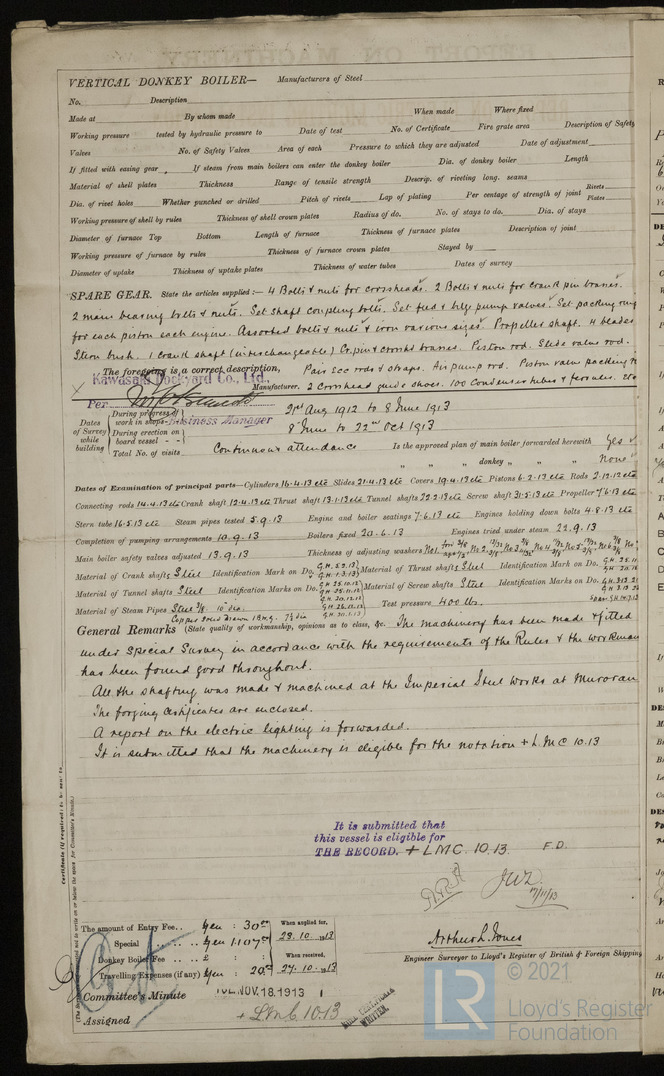 VERTICAL DONKEY BOILER— Manufacturers of Steel
No. Description
Made at By whom made When made Where fixed
Working pressure tested by hydraulic pressure to Date of test No. of Certificate Fire grate area Description of Safety
Valves No. of Safety Valves Area of each Pressure to which they are adjusted Date of adjustment
If fitted with easing gear If steam from main boilers can enter the donkey boiler Dia. of donkey boiler Length
Material of shell plates Thickness Range of tensile strength Descrip. of riveting long. seams
Dia. of rivet holes Whether punched or drilled Pitch of rivets Lap of plating Per centage of strength of joint Rivets Plates
Working pressure of shell by rules Thickness of shell crown plates Radius of do. No. of stays to do. Dia. of stays
Diameter of furnace Top Bottom Length of furnace Thickness of furnace plates Description of joint
Working pressure of furnace by rules Thickness of furnace crown plates Stayed by
Diameter of uptake Thickness of uptake plates Thickness of water tubes Dates of survey
SPARE GEAR. State the articles supplied:— 4 Bolts & nuts for crossheads. 2 Bolts & nuts for crank pin brasses.
2 main bearing bolts & nuts. Set shaft coupling bolts. Set feed & bilge pump valves. Set packing ring
for each piston each engine. Assorted bolts & nuts & iron various sizes. Propeller shaft. 4 blades
Stern bush. 1 crank shaft (interchangeable) Cr. pin & crossh'd brasses. Piston rod. Slide valve rod.
The foregoing is a correct description, Pair Ecc rods & straps. Air pump rod. Piston valve packing
Kawasaki Dockyard Co., Ltd.,
Manufacturer. 2 Crosshead guide shoes. 100 Condenser tubes & ferrules. etc
Per
Business Manager
Dates of Survey while building
During progress of work in shops - - 21st Aug 1912 to 8 June 1913
During erection on board vessel - - 8 June to 22nd Oct 1913
Total No. of visits Continuous attendance Is the approved plan of main boiler forwarded herewith Yes
" " " donkey " " " None
Dates of Examination of principal parts—Cylinders 16.4.13 etc Slides 21.4.13 etc Covers 19.4.13 etc Pistons 6.2.13 etc Rods 2.12.12 etc
Connecting rods 14.4.13 etc Crank shaft 12.4.13 etc Thrust shaft 13.1.13 etc Tunnel shafts 22.2.13 etc Screw shaft 31.5.13 etc Propeller 7.6.13 etc
Stern tube 16.5.13 etc Steam pipes tested 5.9.13 Engine and boiler seatings 7.6.13 etc Engines holding down bolts 4.8.13 etc
Completion of pumping arrangements 10.9.13 Boilers fixed 20.6.13 Engines tried under steam 22.9.13
Main boiler safety valves adjusted 13.9.13 Thickness of adjusting washers
Material of Crank shafts Steel Identification Mark on Do. Material of Thrust shafts Steel Identification Mark on Do.
Material of Tunnel shafts Steel Identification Marks on Do. Material of Screw shafts Steel Identification Marks on Do.
Material of Steam Pipes Steel 3/8 10" dia. Test pressure 400 lbs.
Copper solid drawn
General Remarks (State quality of workmanship, opinions as to class, &c. The machinery has been made & fitted
under Special Survey in accordance with the requirements of the Rules & the workman
has been found good throughout.
All the shafting was made & machined at the Imperial Steel Works at Muroran
The forging certificates are enclosed.
A report on the electric lighting is forwarded.
It is submitted that the machinery is eligible for the notation + LMC 10.13
It is submitted that
this vessel is eligible for
THE RECORD. + LMC. 10.13. F.D.
7/11/13
Certificate (if required) to be sent to
The amount of Entry Fee.. Yen : 30.00 When applied for,
Special Yen 1107 28.10.1913
Donkey Boiler Fee £ : : When received,
Travelling Expenses (if any) Yen : 20 27.10.1913
Arthur L. Jones
Engineer Surveyor to Lloyd's Register of British & Foreign Shipping
Committee's Minute TUE. NOV. 18. 1913
Assigned + LMC. 10.13
MACH. CERTIFICATE WRITTEN.
LR
© 2021
Lloyd's Register
Foundation